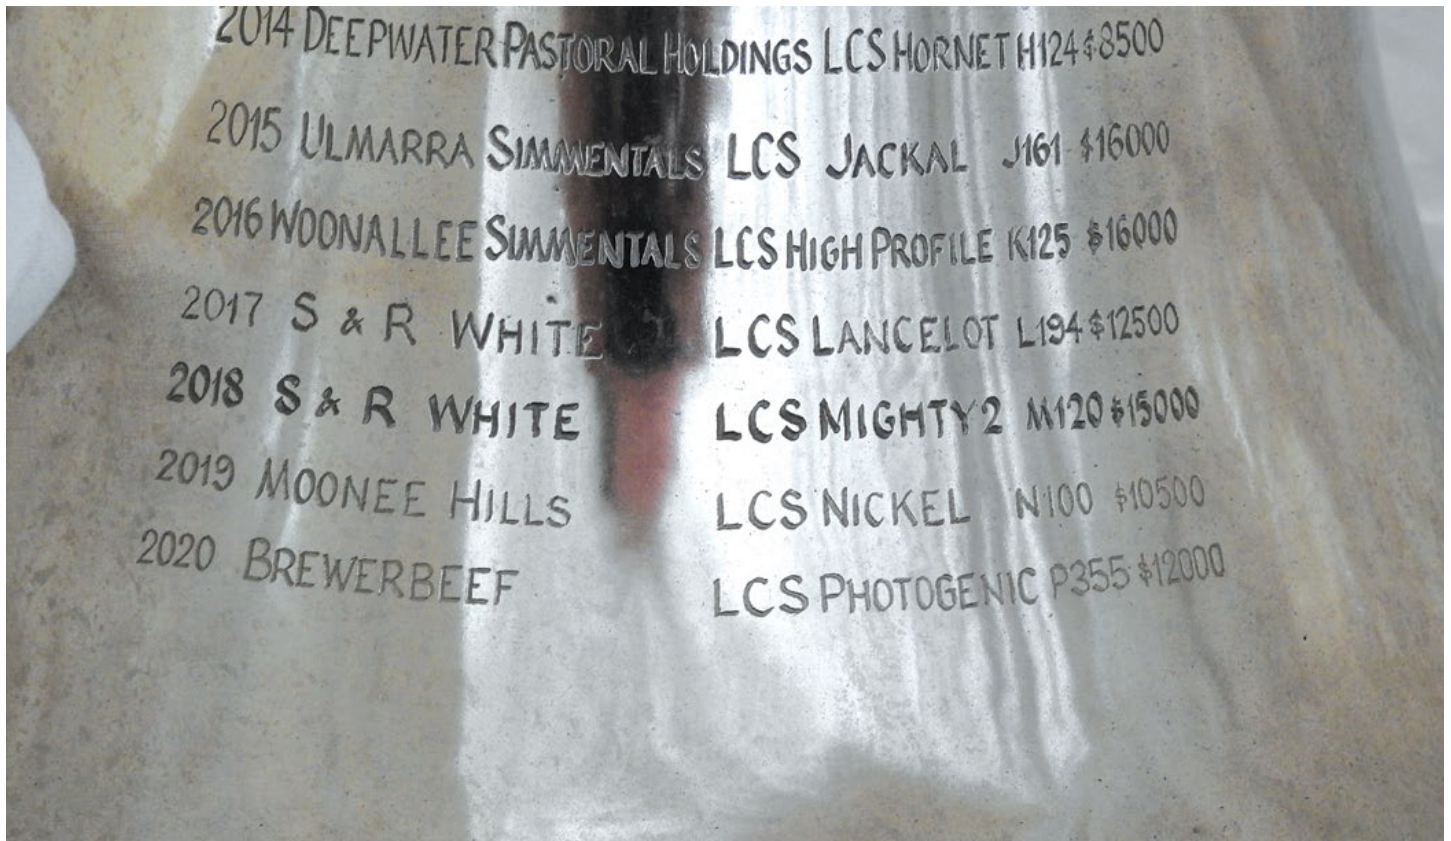 2014 DEEPWATER PASTORAL HOLDINGS LCS HORNET H124 $8500
2015 ULMARRA SIMMENTALS LCS JACKAL J161 $16000
2016 WOONALLEE SIMMENTALS LCS HIGH PROFILE K125 $16000
2017 S & R WHITE LCS LANCELOT L194 $12500
2018 S & R WHITE LCS MIGHTY 2 M120 $15000
2019 MOONEE HILLS LCS NICKEL N100 $10500
2020 BREWERBEEF LCS PHOTOGENIC P355 $12000